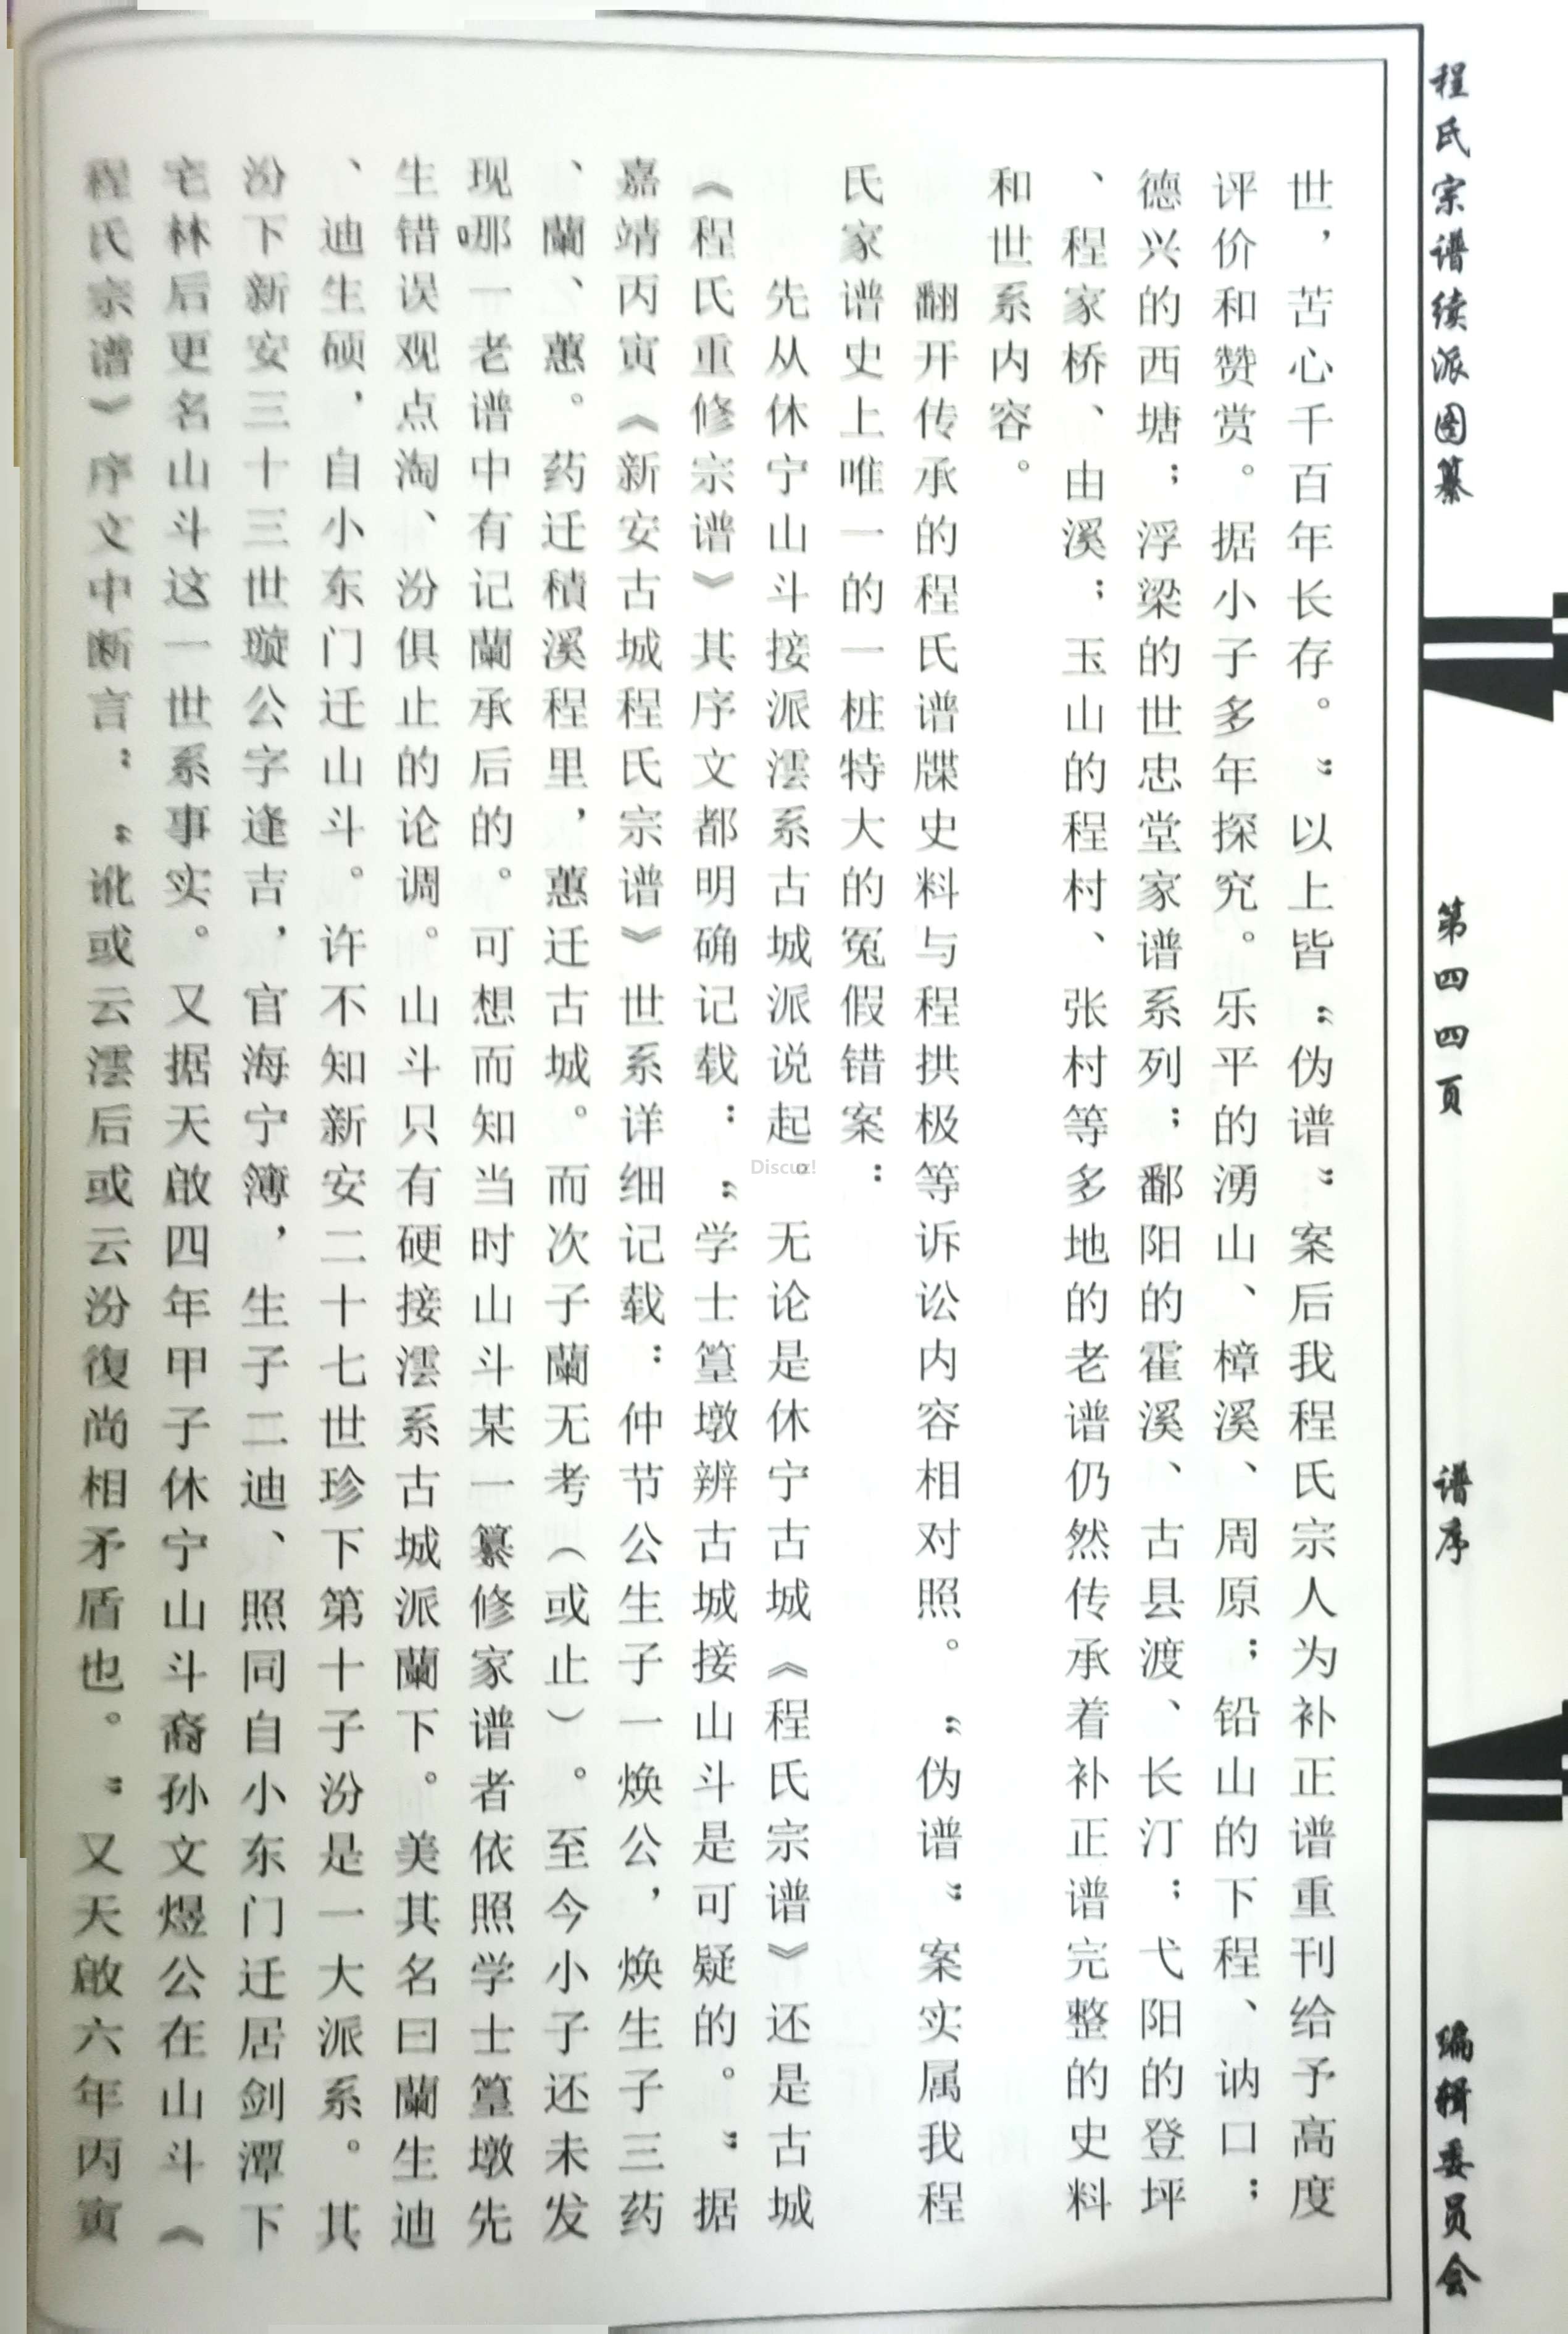 程氏宗谱续派图纂
第四四页
谱序
编辑委员会
世，苦心千百年长存。”以上皆“伪谱”案后我程氏宗人为补正谱重刊给予高度
评价和赞赏。据小子多年探究。乐平的湧山、樟溪、周原；铅山的下程、讷口；
德兴的西塘；浮梁的世忠堂家谱系列；鄱阳的霍溪、古县渡、长汀；弋阳的登坪
、程家桥、由溪；玉山的程村、张村等多地的老谱仍然传承着补正谱完整的史料
和世系内容。
翻开传承的程氏谱牒史料与程拱极等诉讼内容相对照。“伪谱”案实属我程
氏家谱史上唯一的一桩特大的冤假错案：
先从休宁山斗接派澐系古城派说起。无论是休宁古城《程氏宗谱》还是古城
《程氏重修宗谱》其序文都明确记载：“学士篁墩辨古城接山斗是可疑的。”据
嘉靖丙寅《新安古城程氏宗谱》世系详细记载：仲节公生子一焕公，焕生子三药
、蘭、蕙。药迁積溪程里，蕙迁古城。而次子蘭无考（或止）。至今小子还未发
现哪一老谱中有记蘭承后的。可想而知当时山斗某一纂修家谱者依照学士篁墩先
生错误观点淘、汾俱止的论调。山斗只有硬接澐系古城派蘭下。美其名曰蘭生迪
、迪生硕，自小东门迁山斗。许不知新安二十七世珍下第十子汾是一大派系。其
汾下新安三十三世璇公字逢吉，官海宁簿，生子二迪、照同自小东门迁居剑潭下
宅林后更名山斗这一世系事实。又据天啟四年甲子休宁山斗裔孙文煜公在山斗《
程氏宗谱》序文中断言：“讹或云澐后或云汾復尚相矛盾也。”又天啟六年丙寅
Discuz!